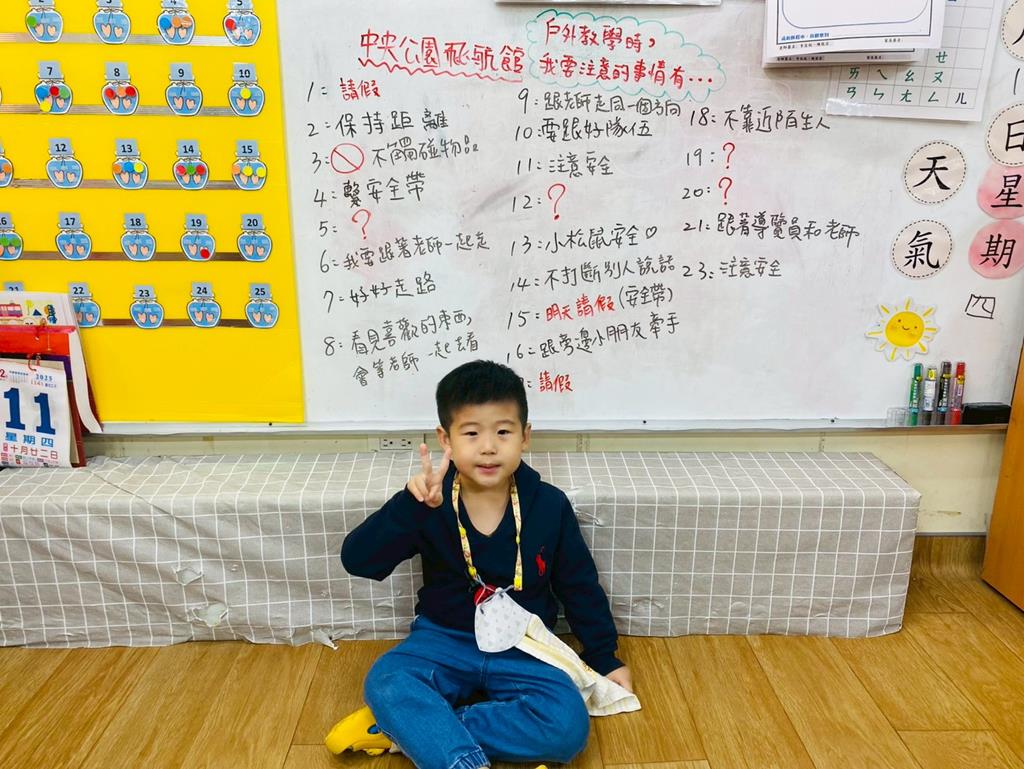 中央公園飛航館
戶外教學時，
我要注意的事情有...
1: 請假
2: 保持距離
3: 不觸碰物品
4: 繫安全帶
5: ?
6: 我要跟著老師一起走
7: 好好走路
8: 看見喜歡的東西，
會等老師一起去看
9: 跟老師走同一個方向
10: 要跟好隊伍
11: 注意安全
12: ?
13: 小松鼠安全♡
14: 不打斷別人說話
15: 明天請假(安全帶)
16: 跟旁邊小朋友牽手
: 請假
18: 不靠近陌生人
19: ?
20: ?
21: 跟著導覽員和老師
23: 注意安全
7 8 9 10
12 13 14 15
17 18 19 20
22 23 24 25
2025
11
星期四
十月廿二日
天
氣
日
星
期
四
ㄝ
ㄌ ㄠ ㄡ ㄥ ㄦ